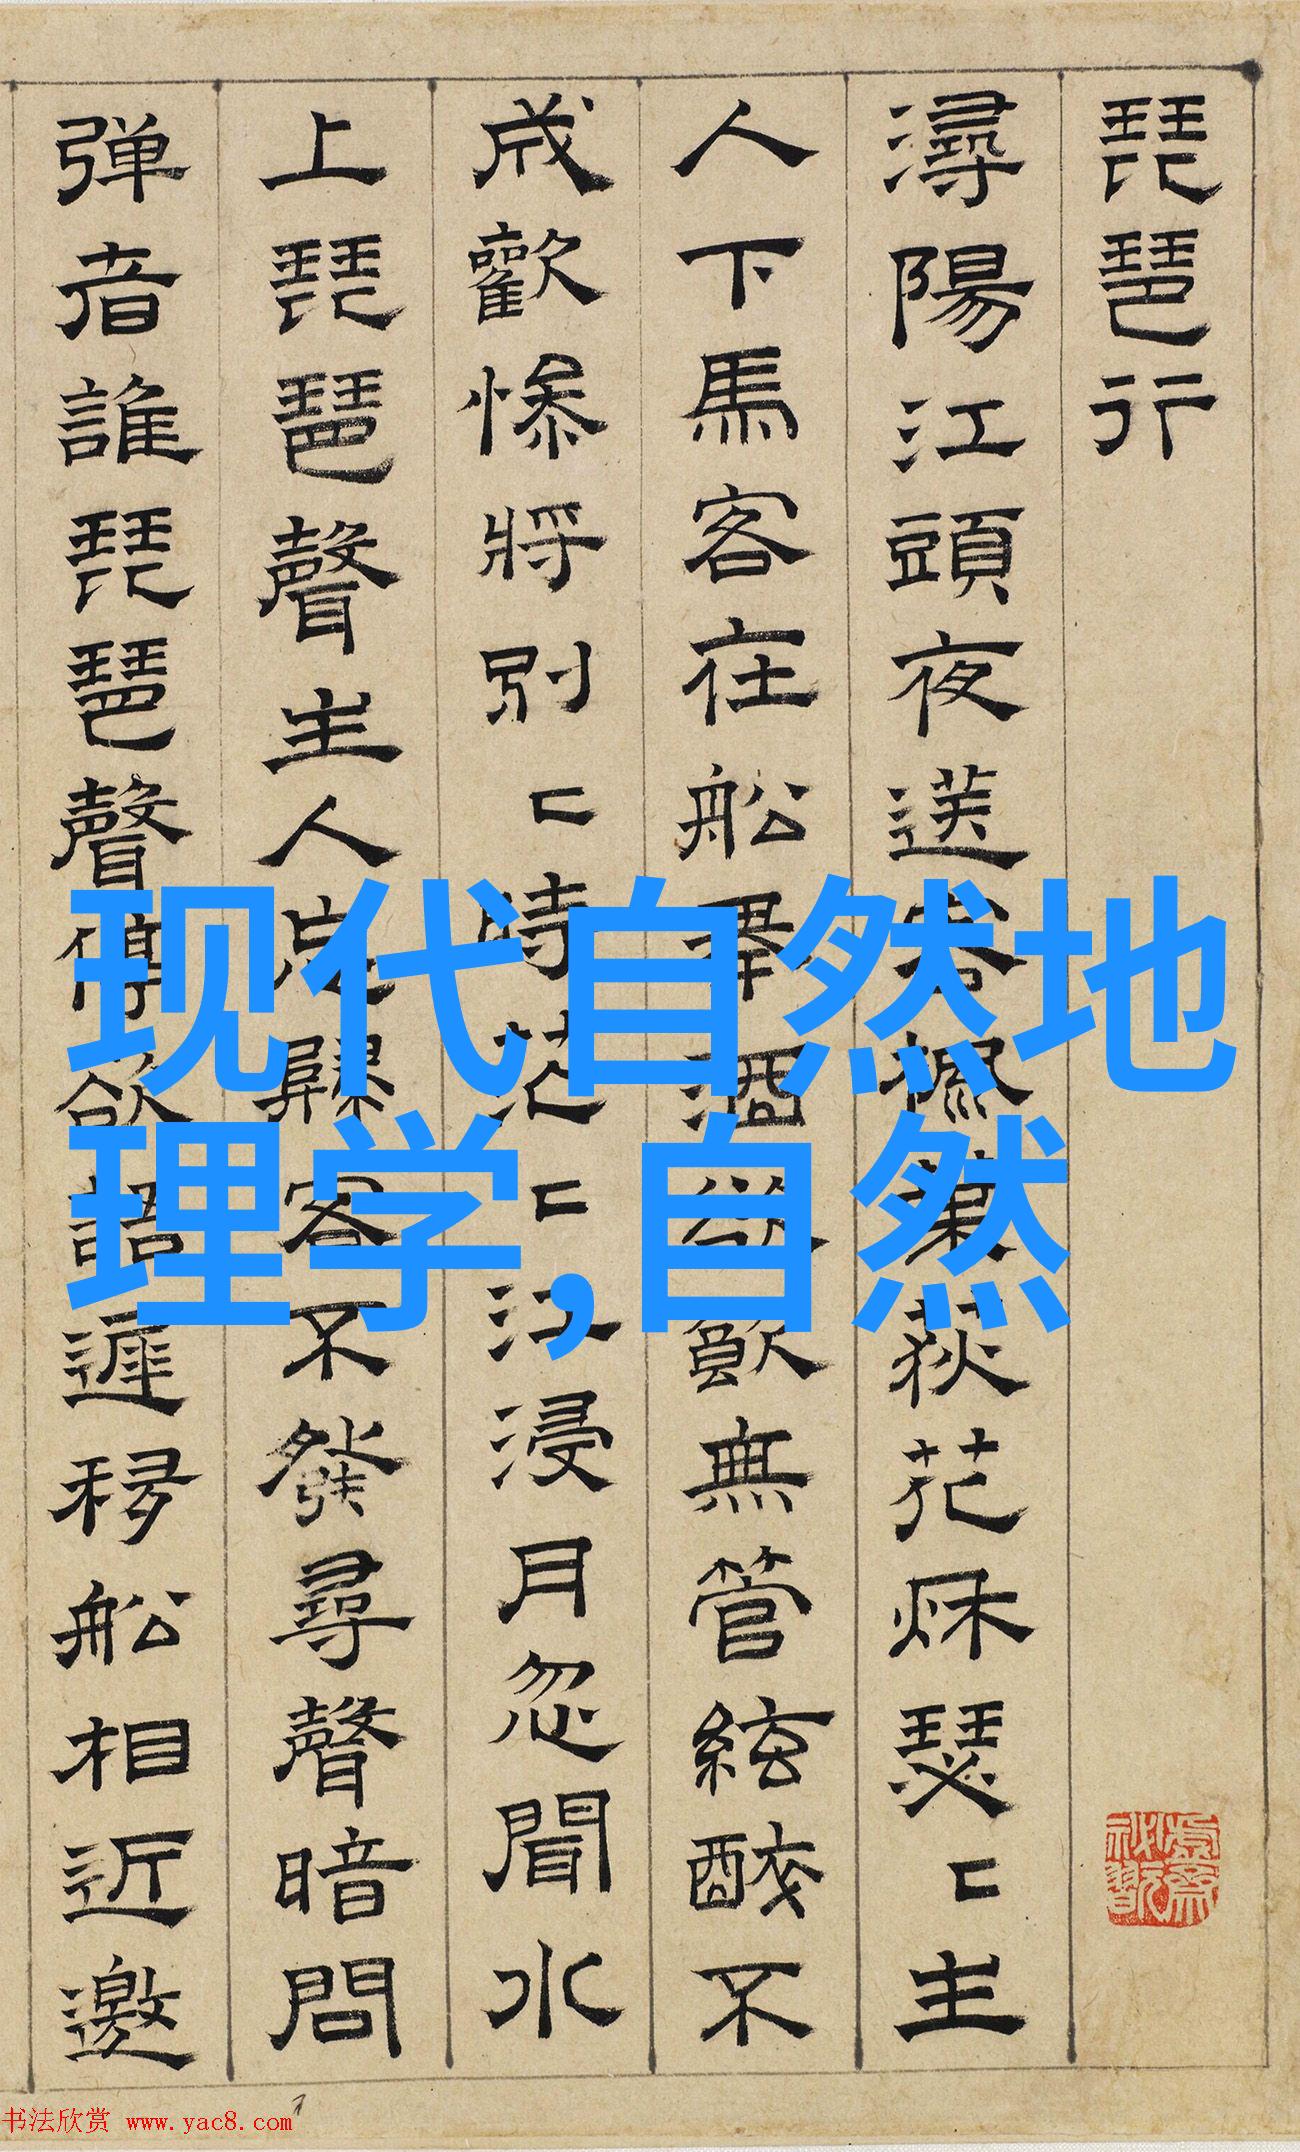 琵琶行
潯陽江頭夜送客楓葉荻花秌瑟〻主
人下馬客在船舉酒欲飲無管絃醉不
成歡慘將別〻時茫〻江浸月忽聞水
上琵琶聲主人忘歸客不發尋聲暗問
弹者誰琵琶聲停欲語遲移船相近邀
现代自然地
理学,自然
书法欣赏 www.yac8.com